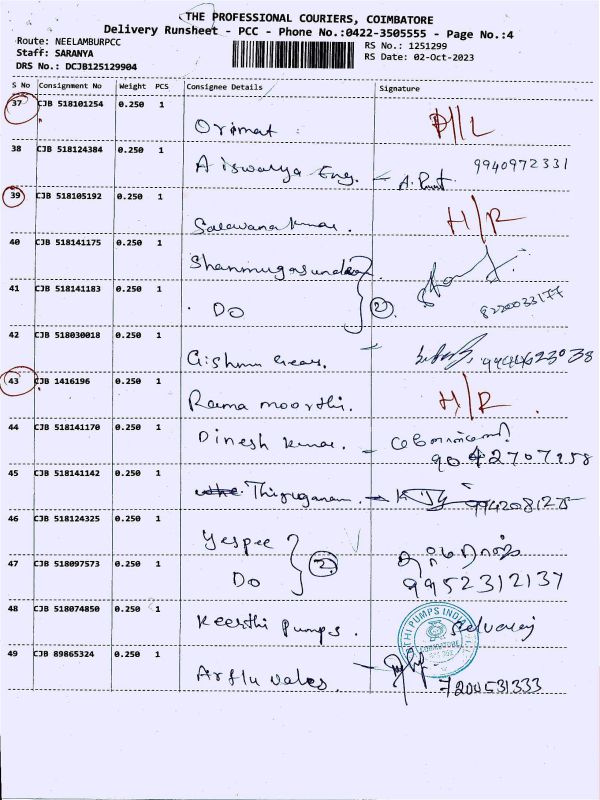 THE PROFESSIONAL COURIERS, COIMBATORE
Delivery Runsheet - PCC - Phone No.:0422-3505555 - Page No.:4
Route: NEELAMBURPCC
Staff: SARANYA
DRS No.: DCJB125129904
RS No.: 1251299
RS Date: 02-Oct-2023
S No Consignment No Weight PCS Consignee Details Signature
37 CJB 518101254 0.250 1
D/L
38 CJB 518124384 0.250 1
Aiswarya Eng. 9940972331
39 CJB 518105192 0.250 1
Saravanakumar. H/R
40 CJB 518141175 0.250 1
Shanmugasundar
41 CJB 518141183 0.250 1
Do 2 8220033177
42 CJB 518030018 0.250 1
43 CJB 1416196 0.250 1
Rama moorthi. H/R
44 CJB 518141170 0.250 1
Dinesh Kumar.
9042707958
45 CJB 518141142 0.250 1
46 CJB 518124325 0.250 1
Yespee
47 CJB 518097573 0.250 1
Do 2 9952312137
48 CJB 518074850 0.250 1
Keerthi Pumps. Selvaraj
49 CJB 89865324 0.250 1